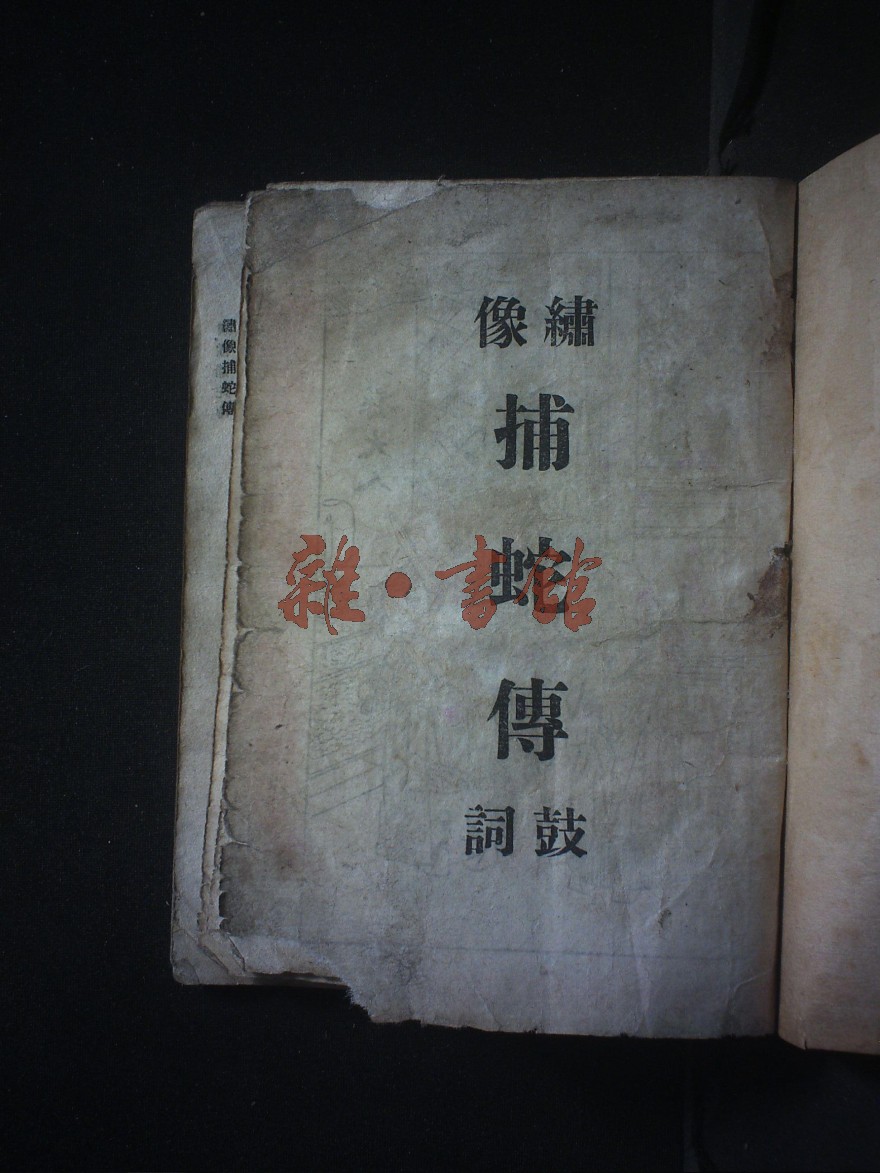 繡像
捕蛇傳
鼓詞
繡像捕蛇傳
雜·書館